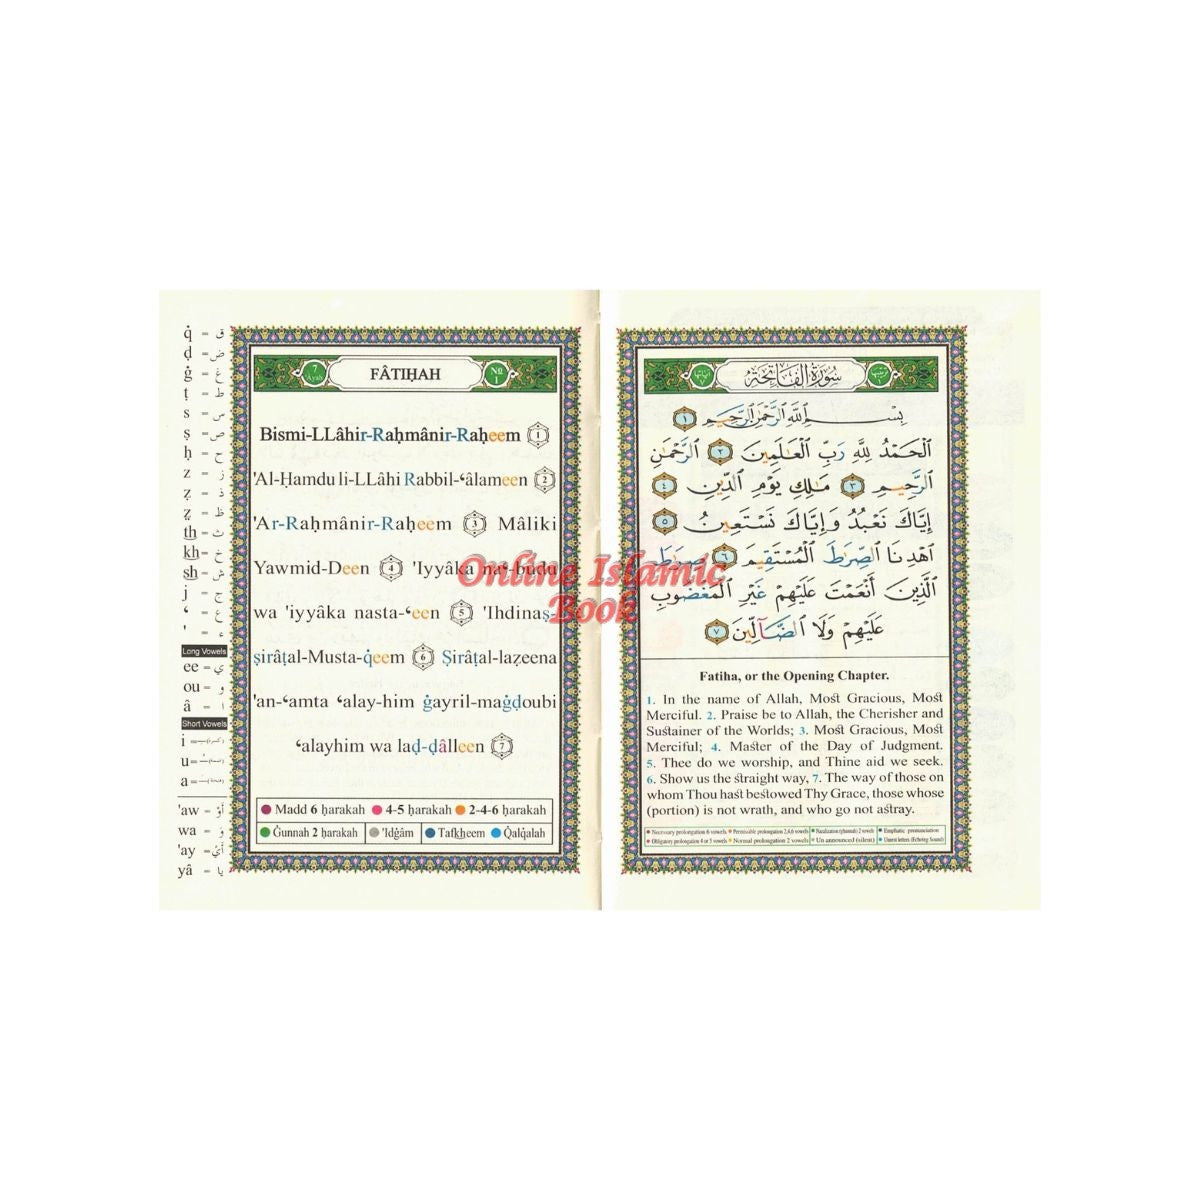 q̇ = ق
ḍ = ض
ġ = غ
ṭ = ط
s = س
ṣ = ص
ḥ = ح
z = ز
ẓ = ظ
th = ث
kh = خ
sh = ش
j = ج
ʻ = ع
' = ء
Long Vowels
ee = ي
ou = و
â = ا
Short Vowels
i =
u =
a =
'aw = أَوْ
wa = وَ
'ay = أَيْ
yâ = يا
7
Ayah
FÂTIḤAH
No
1
Bismi-LLâhir-Raḥmânir-Raḥeem 1
'Al-Ḥamdu li-LLâhi Rabbil-ʻâlameen 2
'Ar-Raḥmânir-Raḥeem 3 Mâliki
Yawmid-Deen 4 'Iyyâka naʻ-budu
wa 'iyyâka nasta-ʻeen 5 'Ihdinaṣ-
ṣirâṭal-Musta-q̇eem 6 Ṣirâṭal-laẓeena
'an-ʻamta ʻalay-him ġayril-maġḍoubi
ʻalayhim wa laḍ-ḍâlleen 7
Madd 6 ḥarakah 4-5 ḥarakah 2-4-6 ḥarakah
Ġunnah 2 ḥarakah 'Idġâm Tafkheem Q̇alq̇alah
سُورَةُ الفَاتِحَةِ
بِسْمِ ٱللَّهِ ٱلرَّحْمَٰنِ ٱلرَّحِيمِ ١
ٱلْحَمْدُ لِلَّهِ رَبِّ ٱلْعَٰلَمِينَ ٢ ٱلرَّحْمَٰنِ
ٱلرَّحِيمِ ٣ مَٰلِكِ يَوْمِ ٱلدِّينِ ٤
إِيَّاكَ نَعْبُدُ وَإِيَّاكَ نَسْتَعِينُ ٥
ٱهْدِنَا ٱلصِّرَٰطَ ٱلْمُسْتَقِيمَ ٦ صِرَٰطَ
ٱلَّذِينَ أَنْعَمْتَ عَلَيْهِمْ غَيْرِ ٱلْمَغْضُوبِ
عَلَيْهِمْ وَلَا ٱلضَّآلِّينَ ٧
Fatiha, or the Opening Chapter.
1. In the name of Allah, Most Gracious, Most
Merciful. 2. Praise be to Allah, the Cherisher and
Sustainer of the Worlds; 3. Most Gracious, Most
Merciful; 4. Master of the Day of Judgment.
5. Thee do we worship, and Thine aid we seek.
6. Show us the straight way, 7. The way of those on
whom Thou hast bestowed Thy Grace, those whose
(portion) is not wrath, and who go not astray.
Necessary prolongation 6 vowels Permissible prolongation 2,4,6 vowels Nazalization (ghunnah) 2 vowels Emphatic pronunciation
Obligatory prolongation 4 or 5 vowels Normal prolongation 2 vowels Un announced (silent) Unrest letters (Echoing Sound)
Online Islamic
Book